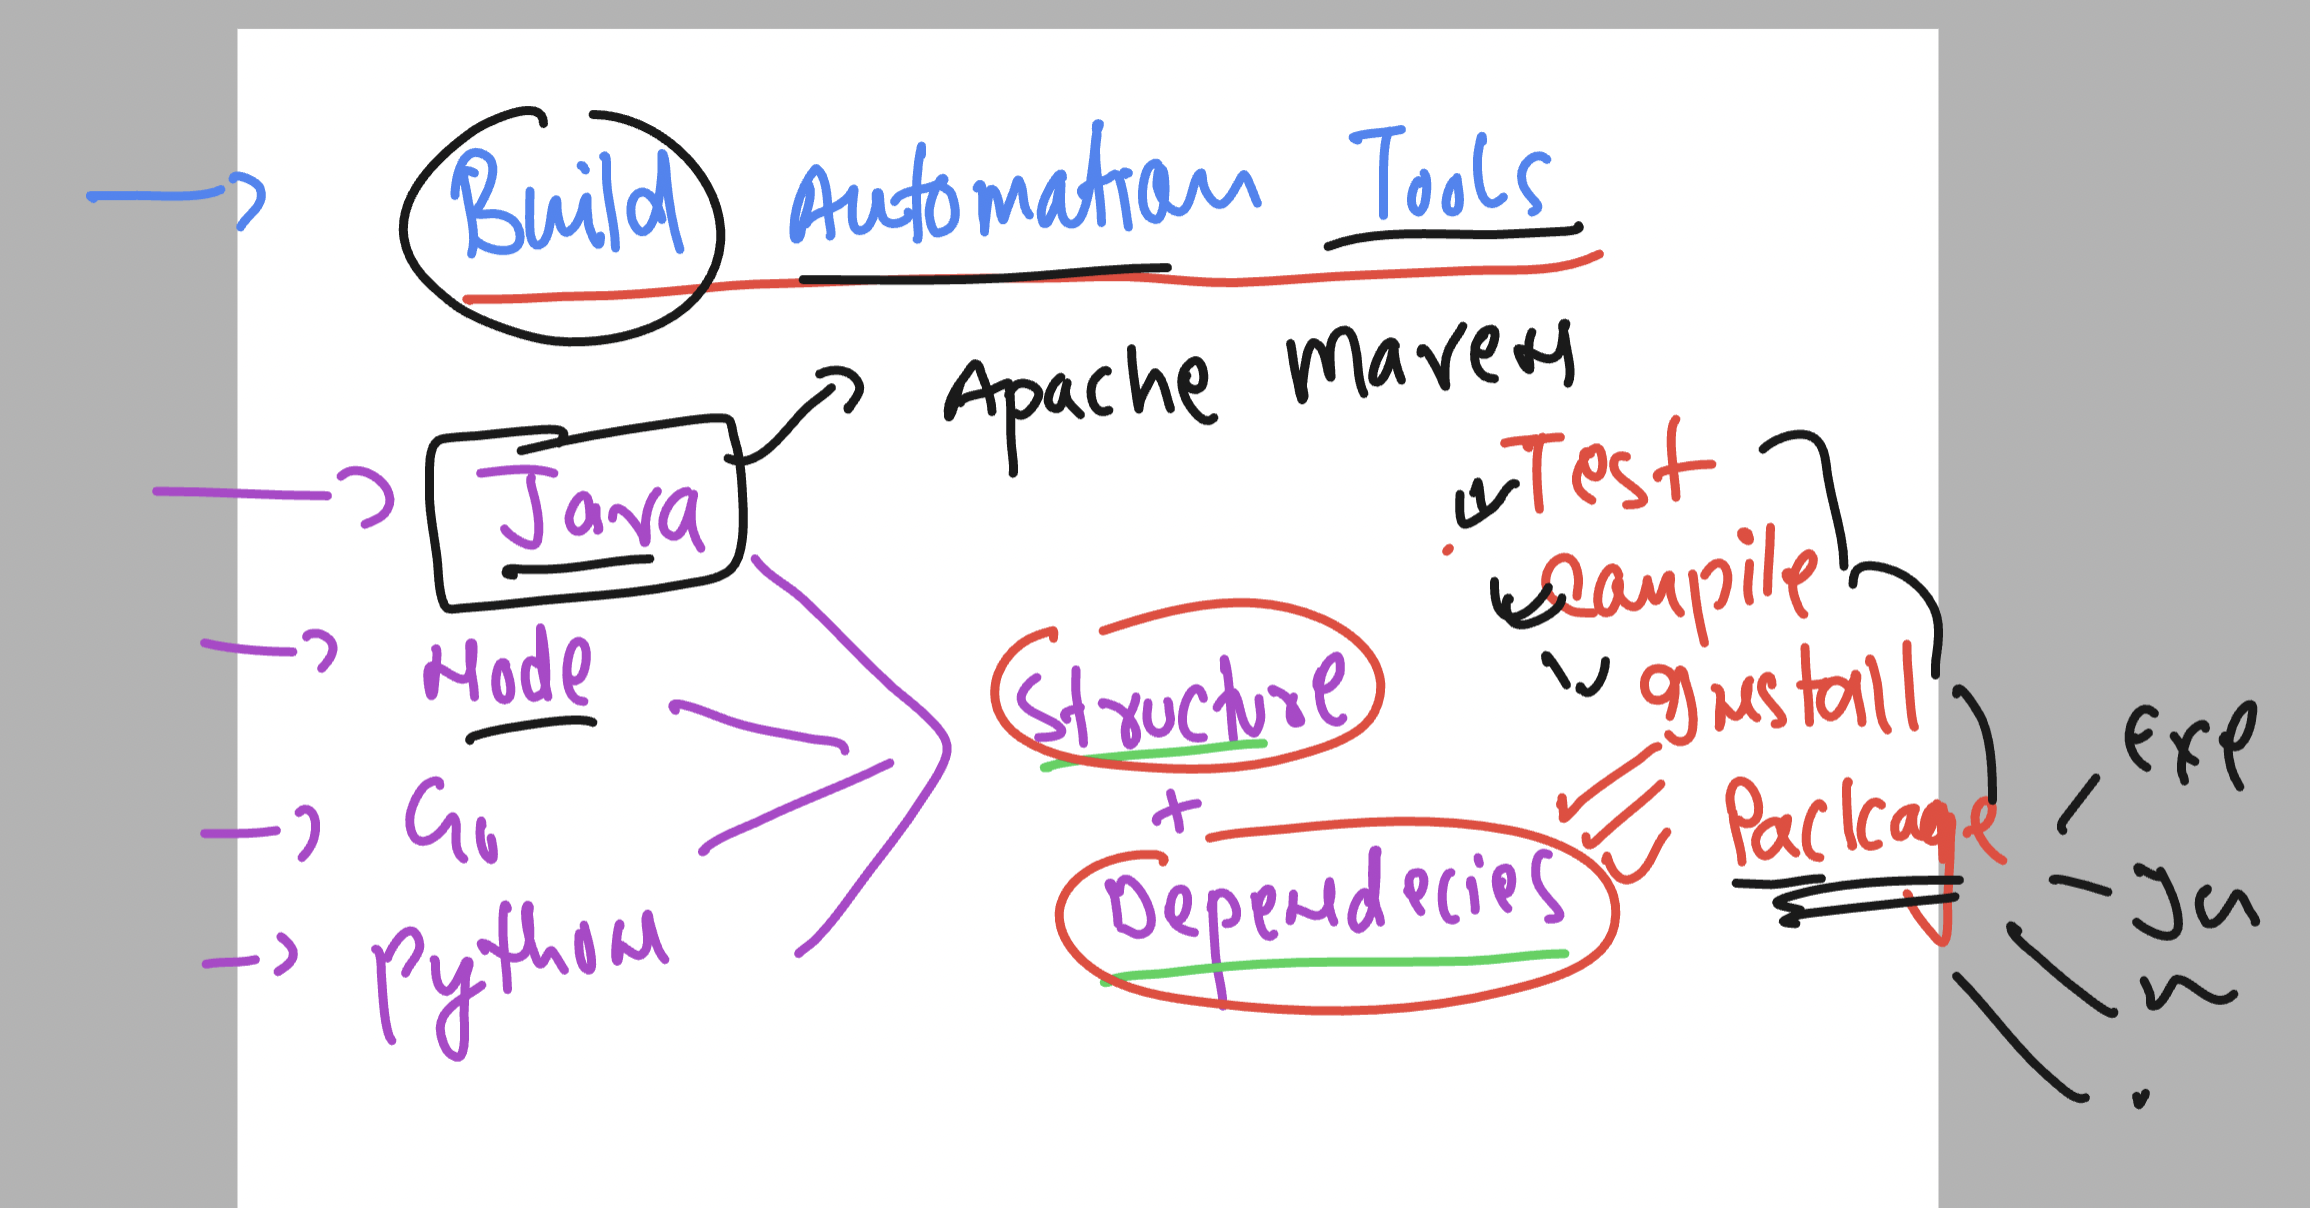 Build Automation Tools
Apache Maven
Java
Node
Go
python
Structure
+
Dependecies
Test
Compile
Install
Package
exe